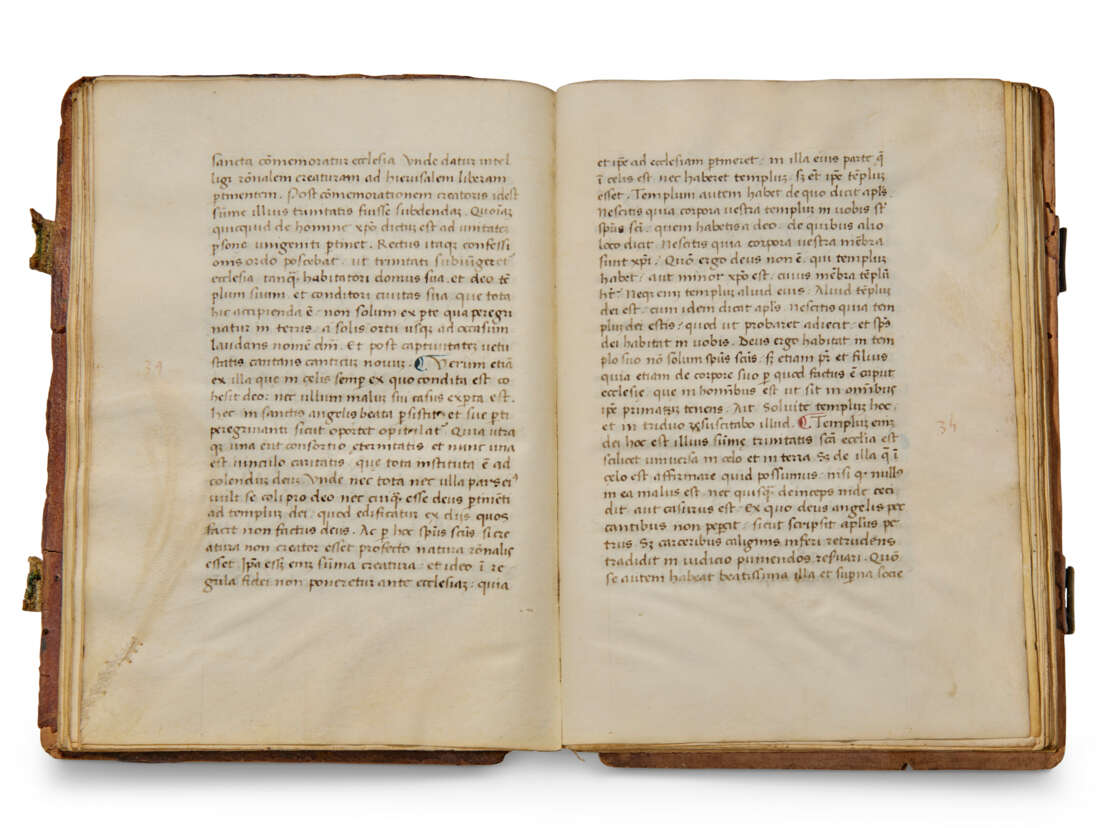 sancta cōmemoratur ecclesia Vnde datur intel
ligi rōnalem creaturam ad hierusalem liberam
ptinentem. Post cōmemorationem creatoris idest
sūme illius trinitatis fuisse subdendaȝ. Quoiaȝ
quicquid de homine xp̄o dictuȝ est ad unitateȝ
psone unigeniti ptinet. Rectus itaqȝ confessi
onis ordo poscebat, ut trinitati subiungeret
ecclesia tanqȝ habitatori domus sua, et deo tē
plum suum, et conditori ciuitas sua, que tota
hic accipienda ē, non solum ex pte qua peregri
natur in terris, a solis ortu usqȝ ad occasum
laudans nomē dn̄i. Et post captiuitateȝ uetu
statis cantans canticuȝ nouuȝ. Verum etiā
ex illa que in celis semp ex quo condita est co
hesit deo, nec ullum maluȝ sui casus expta est.
Hec in sanctis angelis beata psistit, et sue pti
peregrinanti sicut oportet opitulat̄. Quia utra
qȝ una erit consortio eternitatis et nunc una
est uinculo caritatis, que tota instituta ē ad
colenduȝ deuȝ Vnde nec tota nec ulla pars eiꝰ
uult se coli pro deo nec cuiqȝ esse deus ptinēti
ad templuȝ dei, quod edificatur ex diis quos
facit non factus deus. Ac p hoc spūs scūs si cre
atura non creator esset profecto natura rōnalis
esset. Ipa esȝ enȝ sūma creatura, et ideo ī re
gula fidei non poneretur ante ecclesiaȝ, quia
et ipe ad ecclesiam ptineret, in illa eius parte q̄
ī celis est, nec haberet templuȝ, sȝ et ipe tēpluȝ
esset. Templum autem habet de quo dicit apls.
Nescitis quia corpora uestra templuȝ in uobis st̄
spūs sc̄i, quem habetis a deo, de quibus alio
loco dicit. Nescitis quia corpora uestra mēbra
sunt xpi. Quō ergo deus non ē, qui templuȝ
habet, aut minor xpo est, cuius mēbra tēplū
ht̄. Neqȝ enȝ templuȝ aliud eius, Aliud tēpluȝ
dei est, cum idem dicat apls. Nescitis quia tem
pluȝ dei estis, quod ut probaret adiecit, et spūs
dei habitat in uobis. Deus ergo habitat in tem
plo suo nō solum spūs scūs, sȝ etiam pr̄ et filius
quia etiam de corpore suo p quod factus ē caput
ecclesie, que in hominibus est ut sit in omnibus
ipe primatuȝ tenens. Ait. Soluite templuȝ hoc,
et in triduo resuscitabo illud. Templuȝ enȝ
dei hoc est illius sūme trinitatis scā ecclesia est
scilicet uniuersa in celo et in terra. Sȝ de illa q̄ ī
celo est affirmare quid possumus, nisi qꝫ nullꝰ
in ea malus est, nec quisqȝ deinceps inde ceci
dit, aut casurus est. Ex quo deus angelis pec
cantibus non pepcit, sicut scripsit aplus pe
trus. Sȝ carceribus caliginis inferi retrudens
tradidit in iudicio puniendos reseruari. Quō
se autem habeat beatissima illa et supna socie
34